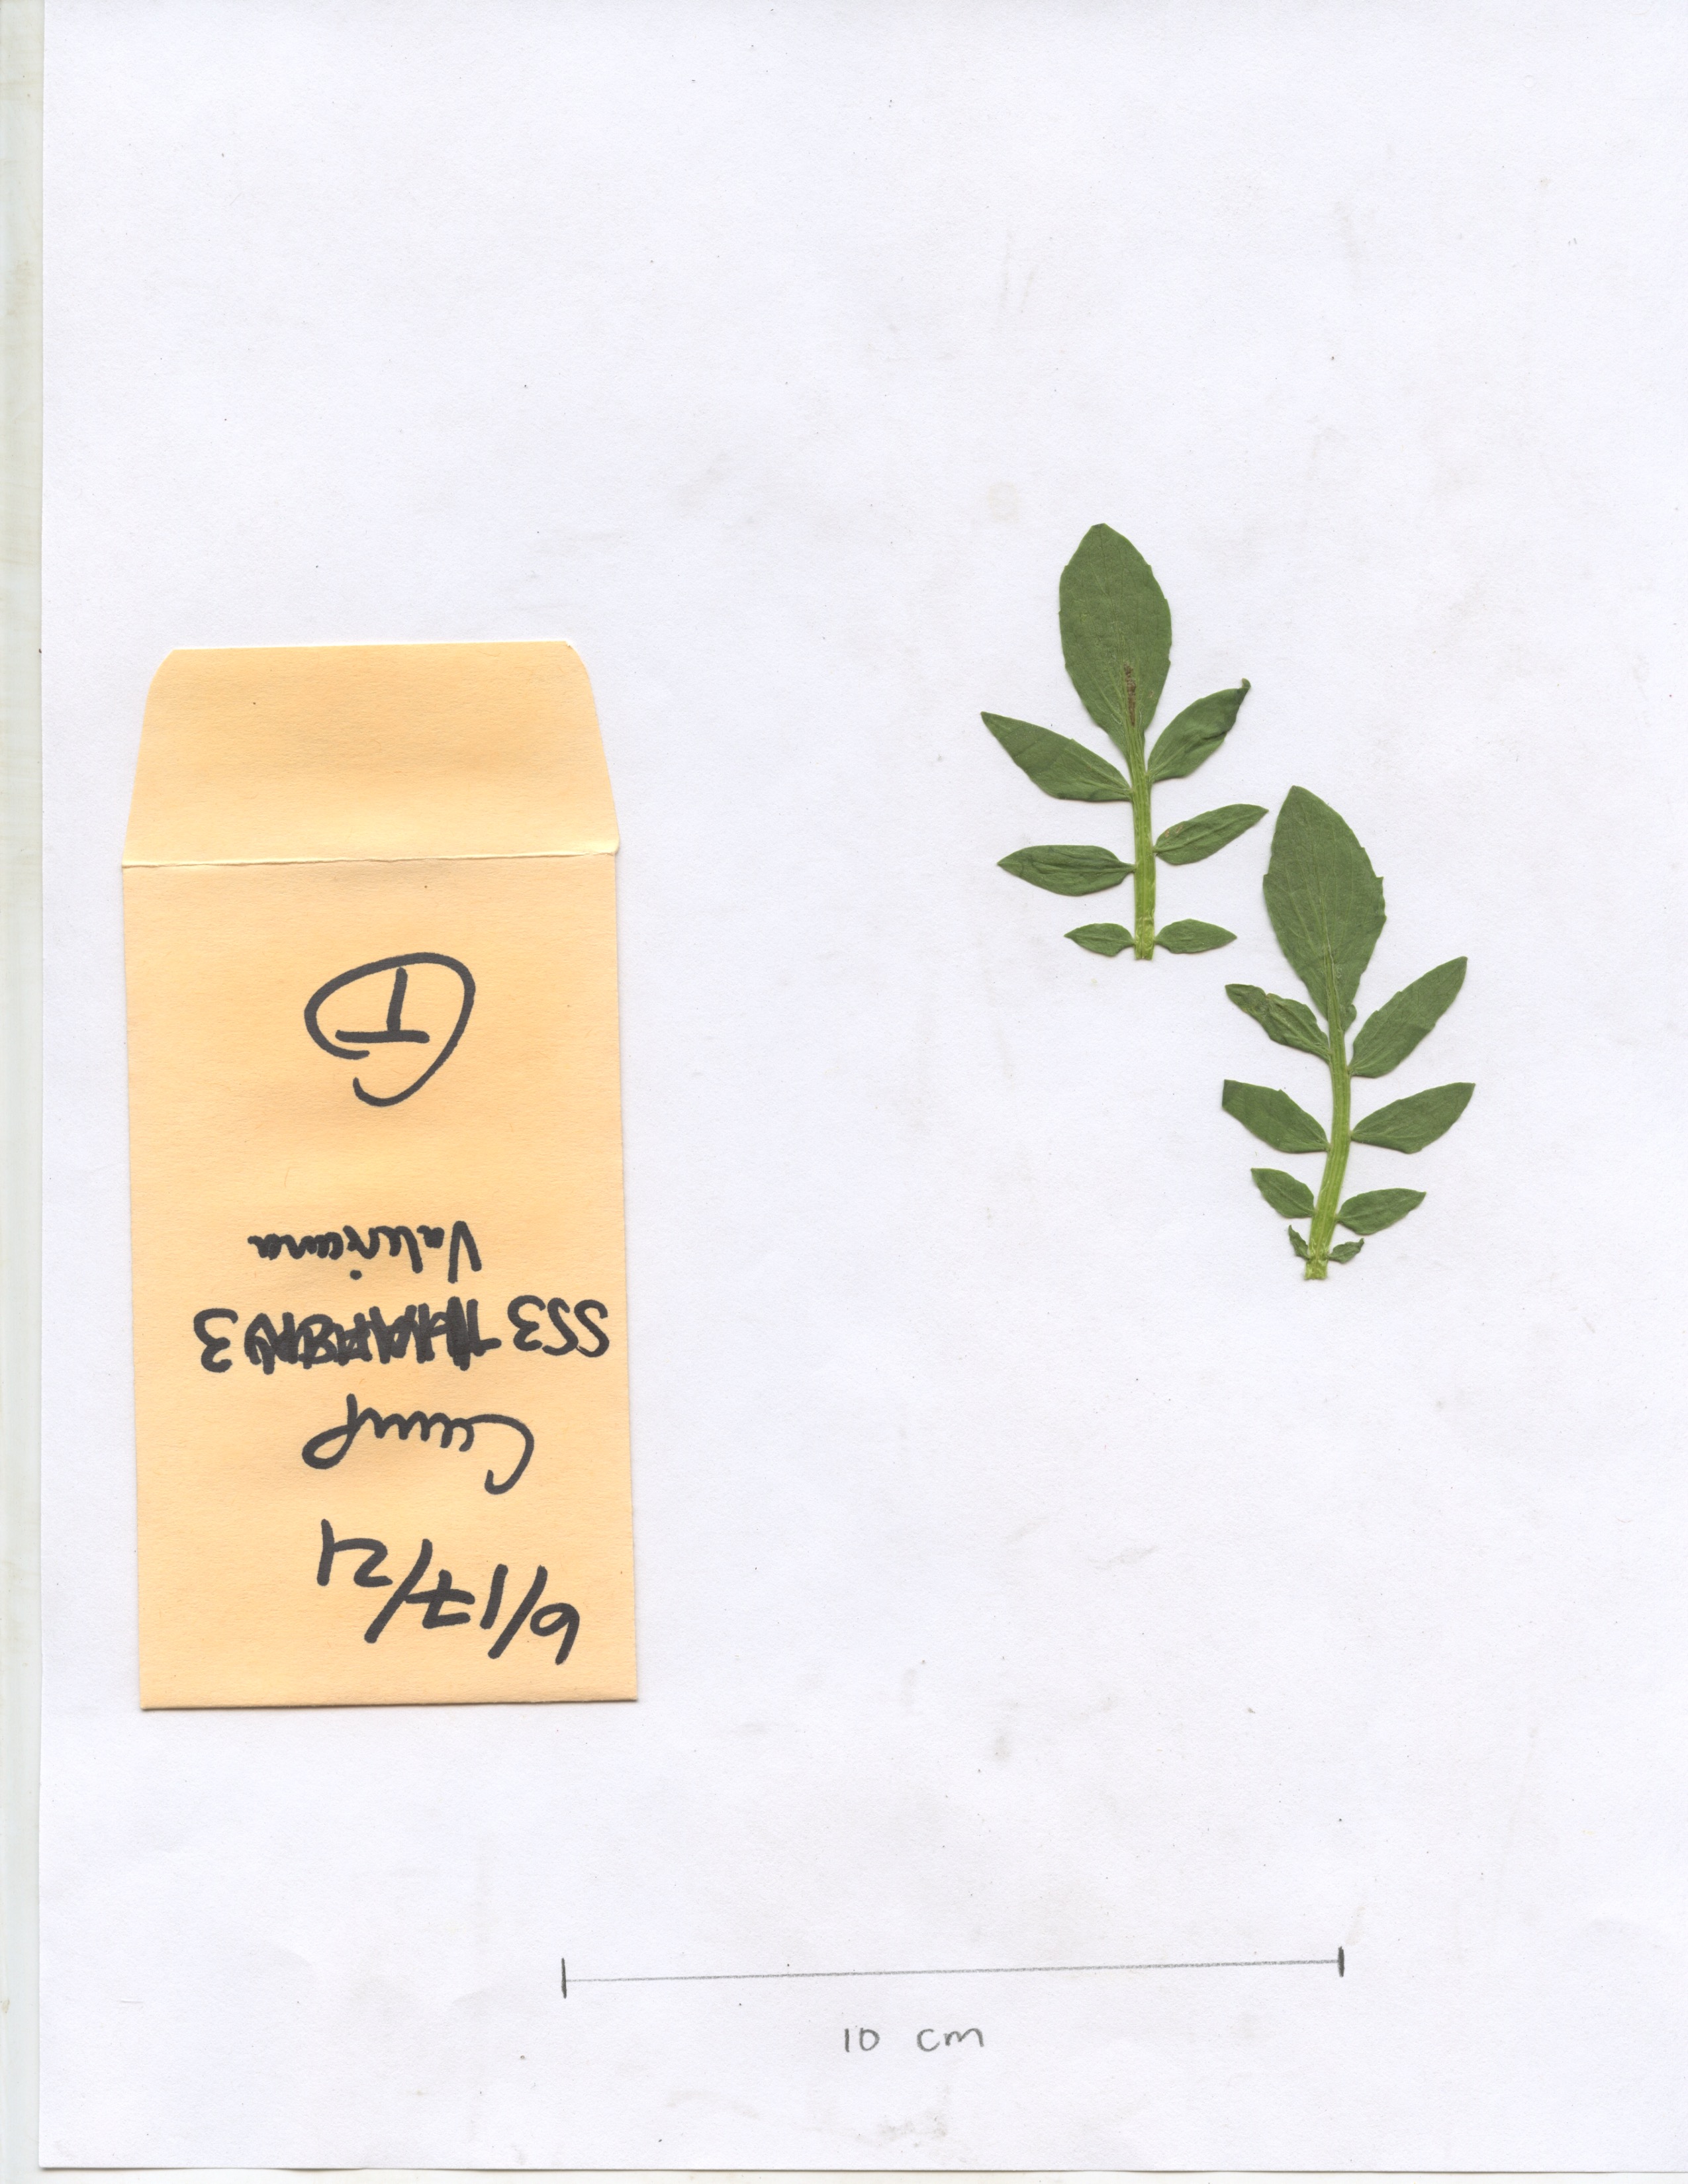 6/17/21
Camp
SS3 3
Valeriana
T
10 cm